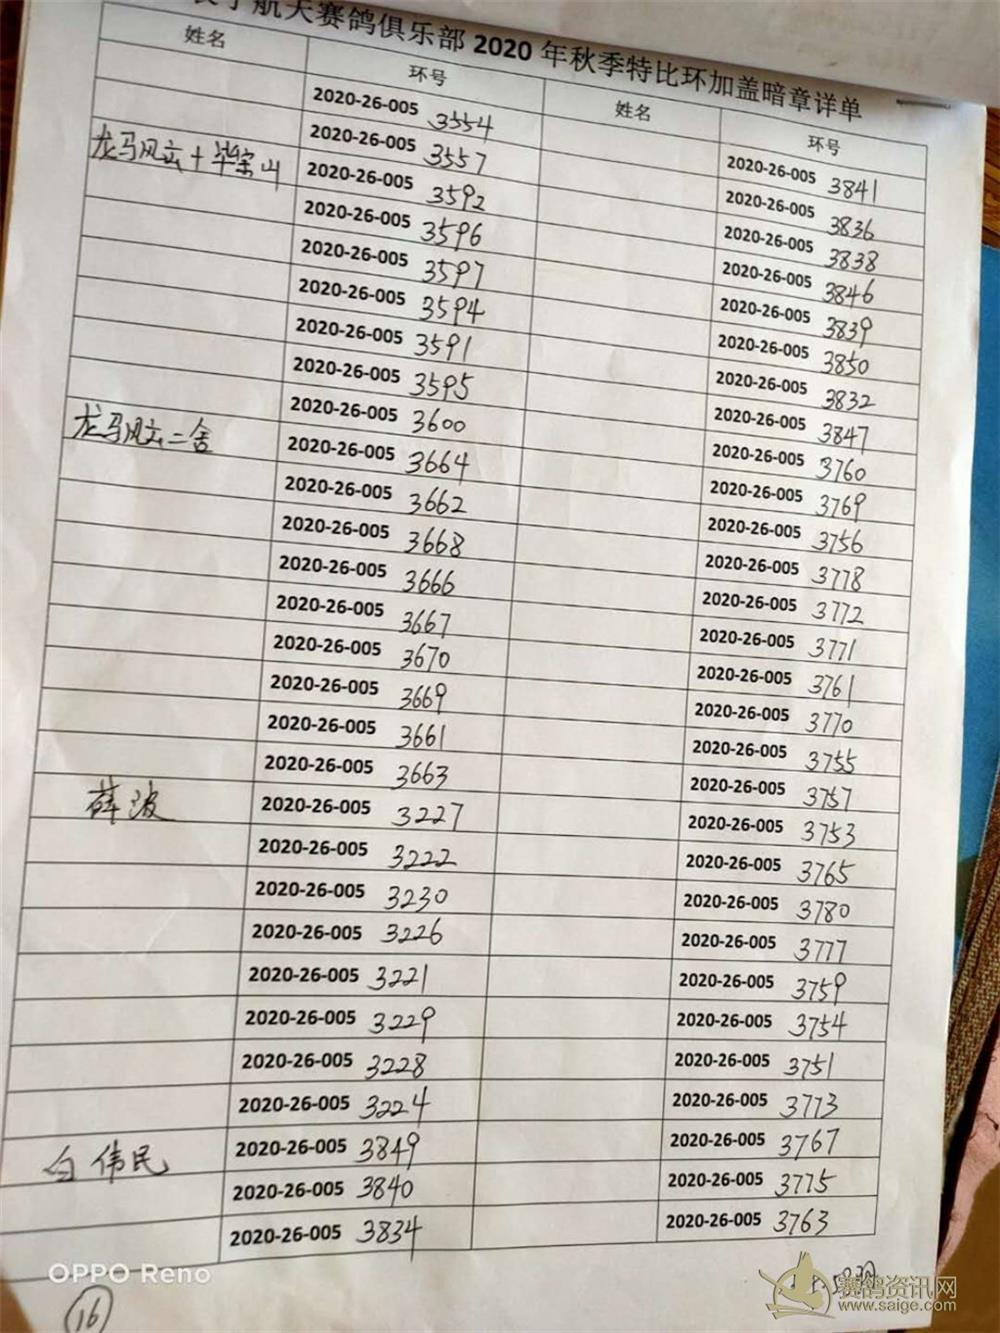 航天赛鸽俱乐部 2020 年秋季特比环加盖暗章详单
姓名 环号 姓名 环号
2020-26-005 3554 2020-26-005 3841
2020-26-005 3557 2020-26-005 3836
龙马风云+毕宗山 2020-26-005 3592 2020-26-005 3838
2020-26-005 3596 2020-26-005 3846
2020-26-005 3597 2020-26-005 3839
2020-26-005 3594 2020-26-005 3850
2020-26-005 3591 2020-26-005 3832
2020-26-005 3595 2020-26-005 3847
2020-26-005 3600 2020-26-005 3760
龙马风云二舍 2020-26-005 3664 2020-26-005 3769
2020-26-005 3662 2020-26-005 3756
2020-26-005 3668 2020-26-005 3778
2020-26-005 3666 2020-26-005 3772
2020-26-005 3667 2020-26-005 3771
2020-26-005 3670 2020-26-005 3761
2020-26-005 3669 2020-26-005 3770
2020-26-005 3661 2020-26-005 3755
2020-26-005 3663 2020-26-005 3757
薛波 2020-26-005 3227 2020-26-005 3753
2020-26-005 3222 2020-26-005 3765
2020-26-005 3230 2020-26-005 3780
2020-26-005 3226 2020-26-005 3777
2020-26-005 3221 2020-26-005 3759
2020-26-005 3229 2020-26-005 3754
2020-26-005 3228 2020-26-005 3751
2020-26-005 3224 2020-26-005 3773
白伟民 2020-26-005 3849 2020-26-005 3767
2020-26-005 3840 2020-26-005 3775
2020-26-005 3834 2020-26-005 3763
OPPO Reno
16
赛鸽资讯网
www.saige.com